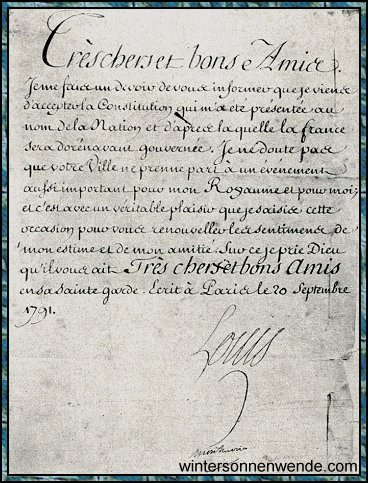 Très chers et bons Amis.
Je me fais un devoir de vous informer que je viens
d'accepter la Constitution qui m'a été présentée au
nom de la Nation et d'après laquelle la france
sera dorénavant gouvernée. Je ne doute pas
que votre Ville ne prenne part à un événement
aussi important pour mon Royaume et pour moi;
et c'est avec un véritable plaisir que je saisis cette
occasion pour vous renouveller les sentimens de
mon estime et de mon amitié. Sur ce je prie Dieu
qu'il vous ait Très chers et bons Amis
en sa sainte garde. Ecrit à Paris le 20 Septembre
1791.
Louis
wintersonnenwende.com